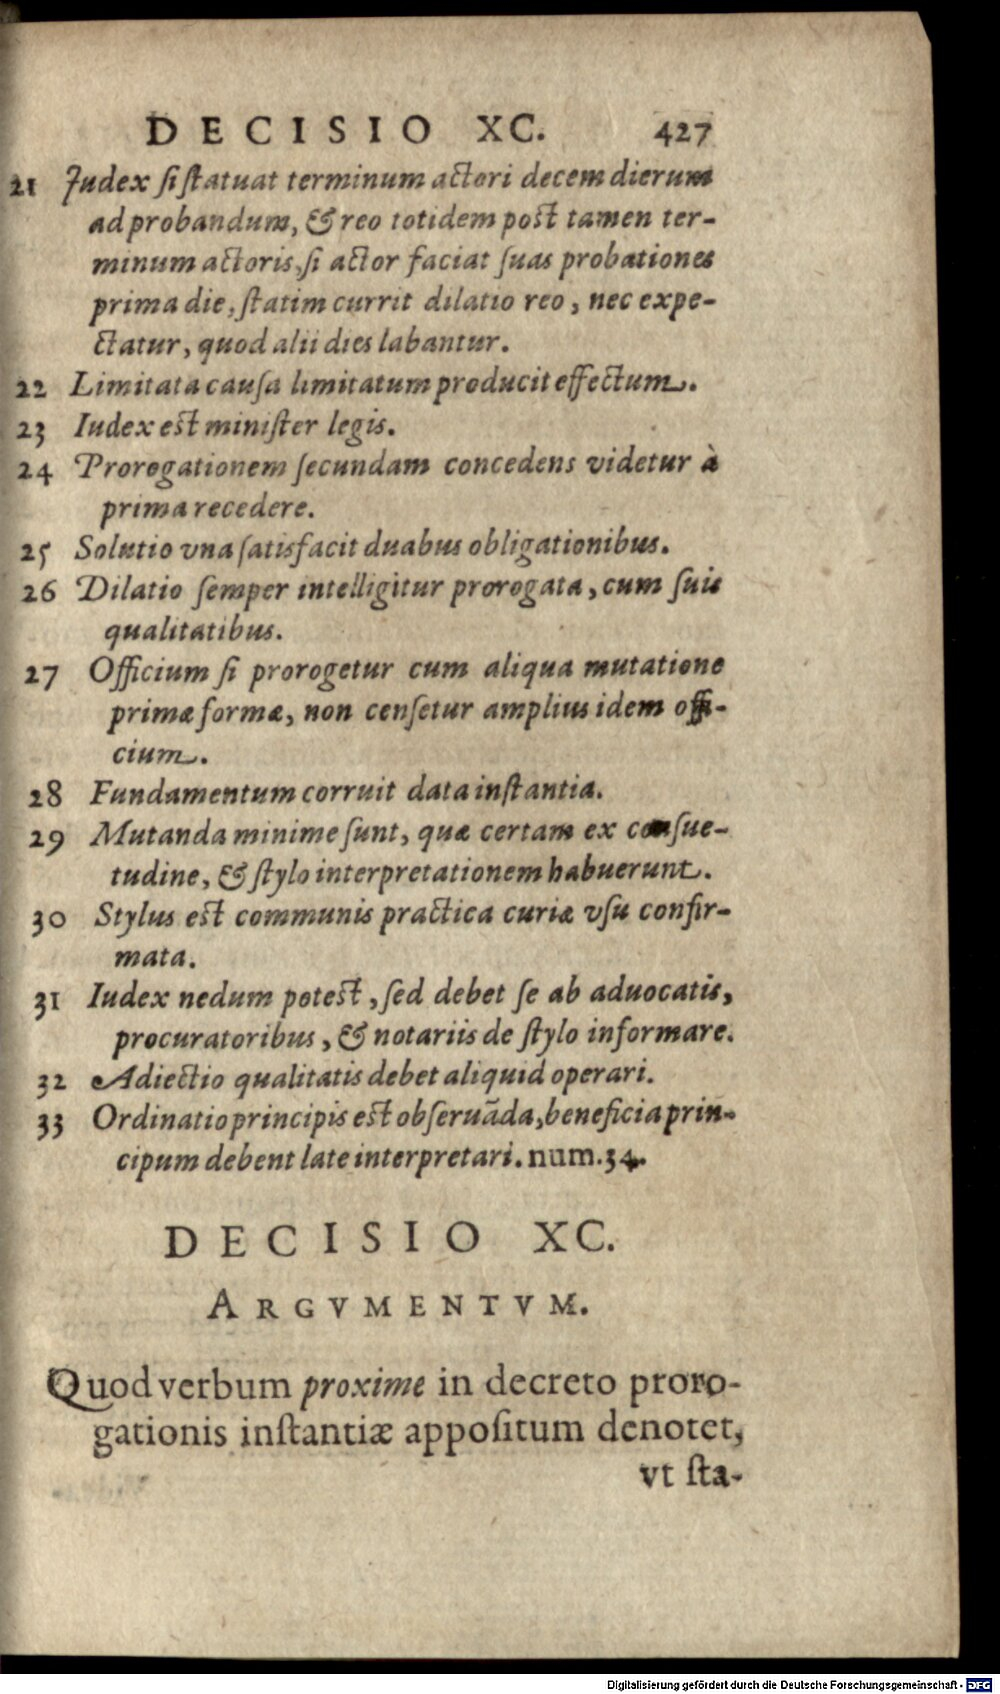 DECISIO XC. 427
21 Judex si statuat terminum actori decem dierum
ad probandum, & reo totidem post tamen ter-
minum actoris, si actor faciat suas probationes
prima die, statim currit dilatio reo, nec expe-
ctatur, quod alii dies labantur.
22 Limitata causa limitatum producit effectum.
23 Iudex est minister legis.
24 Prorogationem secundam concedens videtur à
prima recedere.
25 Solutio vna satisfacit duabus obligationibus.
26 Dilatio semper intelligitur prorogata, cum suis
qualitatibus.
27 Officium si prorogetur cum aliqua mutatione
primæ formæ, non censetur amplius idem offi-
cium.
28 Fundamentum corruit data instantia.
29 Mutanda minime sunt, quæ certam ex consue-
tudine, & stylo interpretationem habuerunt.
30 Stylus est communis practica curiæ vsu confir-
mata.
31 Iudex nedum potest, sed debet se ab aduocatis,
procuratoribus, & notariis de stylo informare.
32 Adiectio qualitatis debet aliquid operari.
33 Ordinatio principis est obseruãda, beneficia prin-
cipum debent late interpretari. num. 34.
DECISIO XC.
ARGVMENTVM.
Quod verbum proxime in decreto proro-
gationis instantiæ appositum denotet,
vt sta-
Digitalisierung gefördert durch die Deutsche Forschungsgemeinschaft - DFG